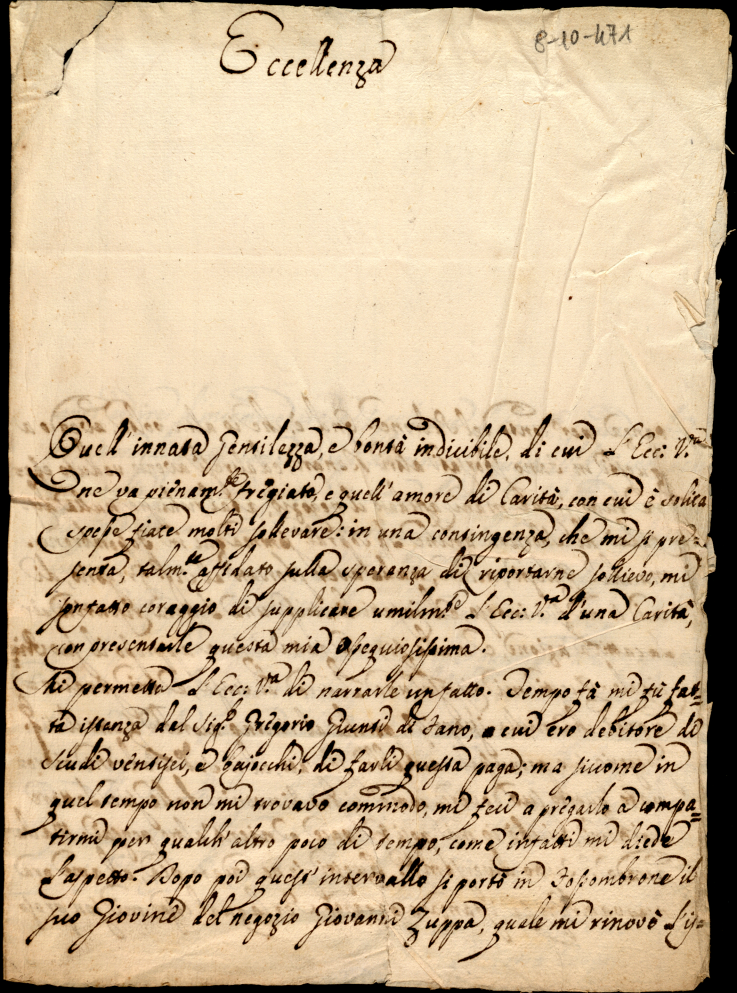 8-10-471
Eccellenza
Quell' innata Gentilezza, e bontà indicibile, di cui l'Ecc: V.ra
ne va pienam.te fregiato, e quell' amore di Carità, con cui è solita
spesse fiate molti sollevare: in una contingenza, che mi si pre=
senta, talm.te affidato sulla speranza di riportarne sollievo, mi
son fatto coraggio di supplicare umilm.te l'Ecc: V.ra d'una Carità,
con presentarle questa mia ossequiosissima.
Mi permetta l'Ecc: V.ra di narrarle un fatto. Tempo fà mi fù fat=
ta istanza dal Sig.r Gregorio Giunti di Fano, a cui ero debitore di
Scudi ventisei, e bajocchi, di farli questa paga; ma siccome in
quel tempo non mi trovavo commodo, mi feci a pregarlo a compa=
tirmi per qualch' altro poco di tempo, come infatti mi diede
l'aspetto. Dopo poi quest' intervallo si portò in Fossombrone il
suo Giovine del negozio Giovanni Zuppa, quale mi rinovò l'is=